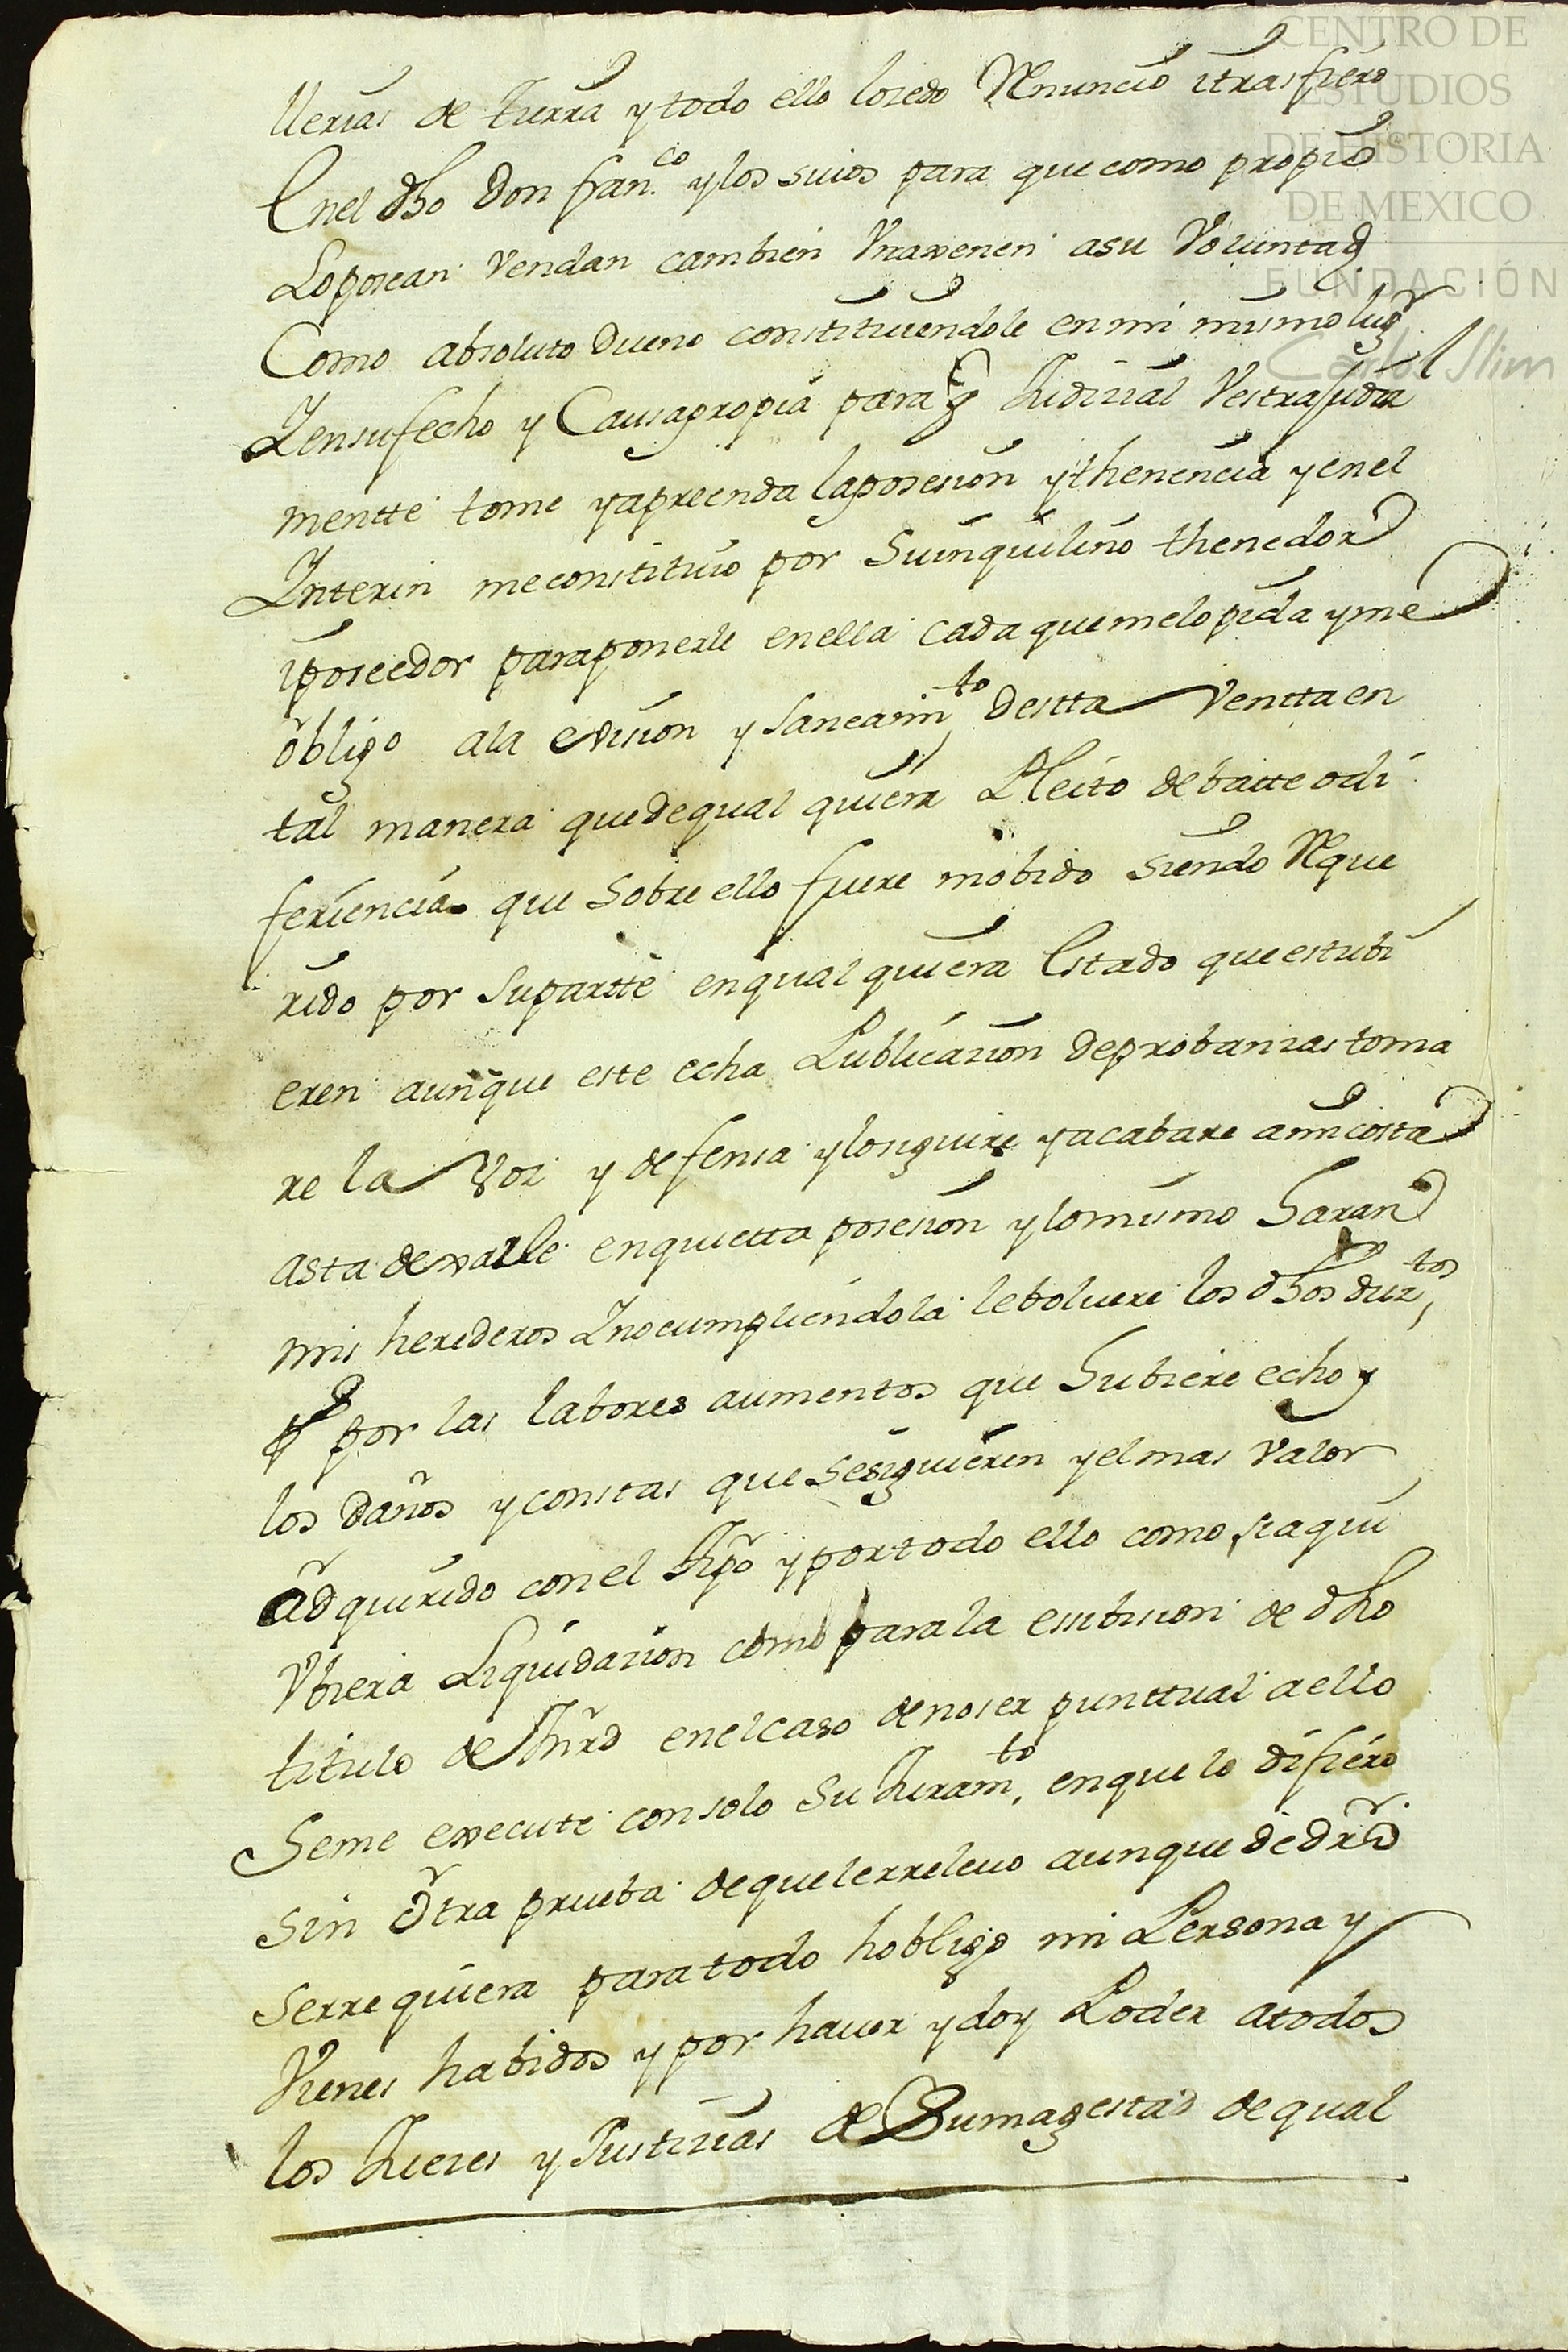 CENTRO DE
ESTUDIOS
DE HISTORIA
DE MEXICO
FUNDACIÓN
Carlos Slim
llerias de tierra y todo ello losedo Renuncio itrasfiero
Enel dho Don fran.co ylos suios para que como propio
Loposean vendan cambien Vnaxenen asu Voluntad
Como absoluto dueno constituiendole enmi mismo lugr
Yensufecho y Causapropia para q Judizial Vestrajudizial
mentte tome yaprrenda laposesion ythenencia yenel
Ynterin meconstituio por Suinquilino thenedor
iposeedor paraponerle enella cada quemelopida yme
obligo ala evision y saneamto destta Ventta en
tal manera quedequal quiera Pleito debatte odi
feriencia que sobre ello fuere mobido siendo Reque
rido por suparttte enqual quiera Estado que estubi
eren aunque este echa Publicazion deprobanzas toma
re la Voz y defensa ylosiguire yacabare amicosta
asta dexalle enquietta posesion ylomismo haran
mis herederos Ynocumpliendola lebolvere los dhos duztos
ps por las labores aumentos que hubiere echo y
los daños y constas que sesiguieren yelmas valor
adquirido conel tpo yportodo ello como siaqui
Vbiera Liquidazion como parala essibision de dho
titulo de mrd enelcaso denoser punttual aello
Seme execute consolo su Juramto, enquelo difiero
sin otra prueba dequelerrelevo aunque dedro
serrequiera paratodo hobligo mi Persona y
Vienes habidos y por haver ydoy Poder atodos
los Juezes y Justizias de Sumagestad dequal